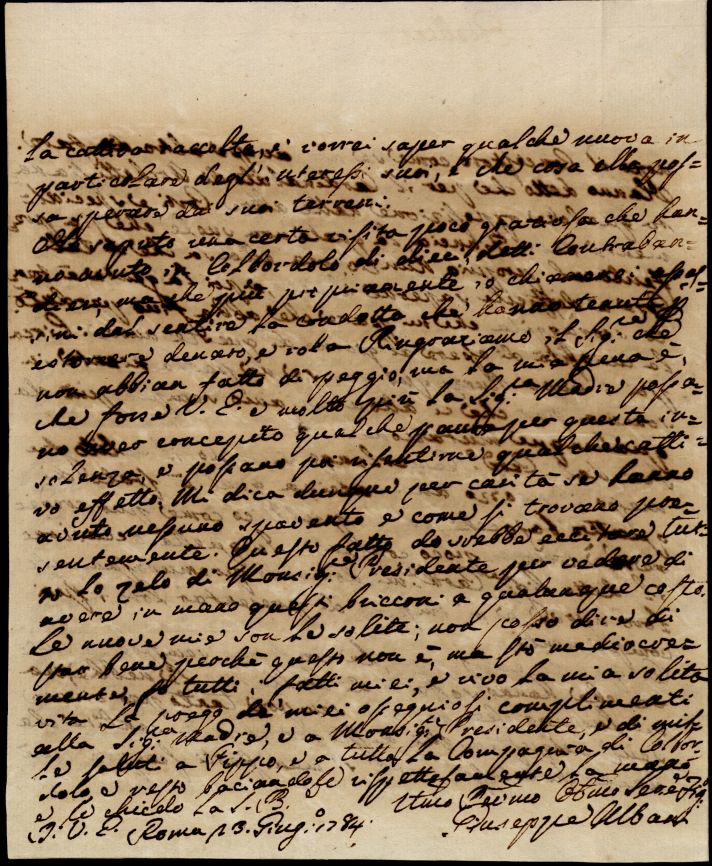 la cattiva raccolta, e vorrei saper qualche nuova in
particolare degl'interessi suoi, e che cosa ella pos=
sa sperare da suoi terreni.
Ho saputo una certa visita poco graziosa che han=
no avuto in Colbordolo di dieci, detti Contraban=
dieri, ma che più propriamente io chiamarei assas=
sini dal sentire la condotta che hanno tenuta p
estorcere denaro, e roba. Ringraziamo il Sig.re che
non abbian fatto di peggio, ma la mia pena è,
che forse V. E. e molto più la Sig.ra Madre possa=
no aver concepito qualche paura per questa in=
solenza, e possano poi risentirne qualche catti=
vo effetto. Mi dica dunque per carità se hanno
avuto nessuno spavento e come si trovano pre=
sentemente. Questo fatto dovrebbe eccitare tut=
to lo zelo di Monsig.r Presidente per vedere di
avere in mano questi bricconi a qualunque costo.
Le nuove mie son le solite; non posso dire di
star bene perchè questo non è, ma stò mediocre=
mente, fo tutti i fatti miei, e vivo la mia solita
vita. La prego de' miei ossequiosi complimenti
alla Sig.ra Madre, e a Monsig.r Presidente, e di mil=
le saluti a Pippo, e a tutta la Compagnia di Colbor=
dolo, e resto baciandole rispettosamente la mano
e le chiedo la S. B.
D. V. E. Roma 23. Giug.o 1784.
Giuseppe Albani